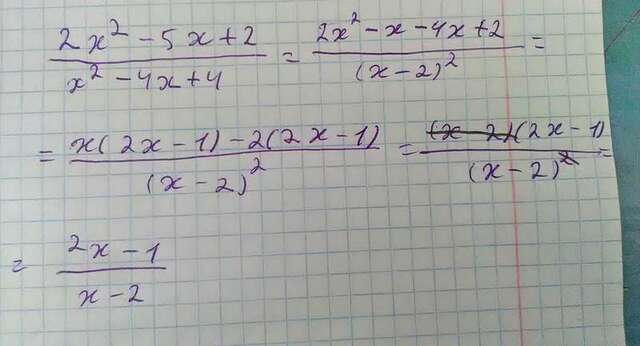 (2x² - 5x + 2)/(x² - 4x + 4) = (2x² - x - 4x + 2)/((x - 2)²) =
= (x(2x - 1) - 2(2x - 1))/((x - 2)²) = ((x - 2)(2x - 1))/((x - 2)²) =
= (2x - 1)/(x - 2)